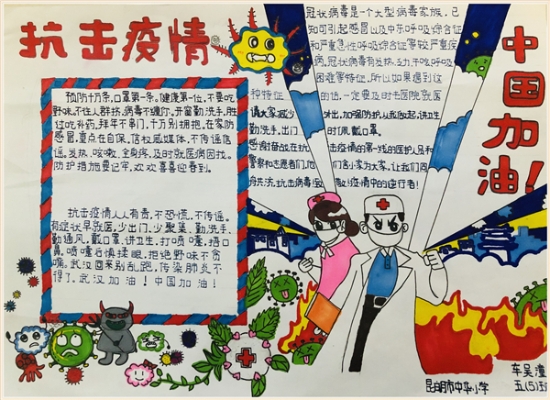 抗击疫情
预防千万条,口罩第一条。健康第一位,不要吃
野味,不在人群挤,病毒不缠你,开窗勤洗手,胜
过吃补药,拜年不串门,千万别拥抱,在家防
感冒,重点在自保,信权威媒体,不传谣信
谣。发热、咳嗽、全身疼,及时就医病因找。
防护措施要记牢,欢欢喜喜迎春到。
抗击疫情人人有责,不恐慌、不传谣。
有症状早就医,少出门、少聚集、勤洗手、
勤通风,戴口罩、讲卫生、打喷嚏、捂口
鼻。喷嚏后慎揉眼,拒绝野味不贪
嘴。武汉回来别乱跑,传染肺炎不
得了。武汉加油!中国加油!
冠状病毒是一个大型病毒家族,已
知可引起感冒以及中东呼吸综合征
和严重急性呼吸综合征等较严重疾
病,冠状病毒有发热、咳
困难等特征,所以如果遇到这
种特征的话,一定要及时去医院就医
请大家减少,加强防护从我做起,讲卫生
勤洗手,出门时佩戴口罩。
感谢奋战在抗击疫情的第一线的医护人员和
警察和志愿者们,们舍小家为大家,让我们同
舟共济,抗击病毒疫情中的逆行者!
中国加油!
昆明市中华小学
车昊潼
五(5)班